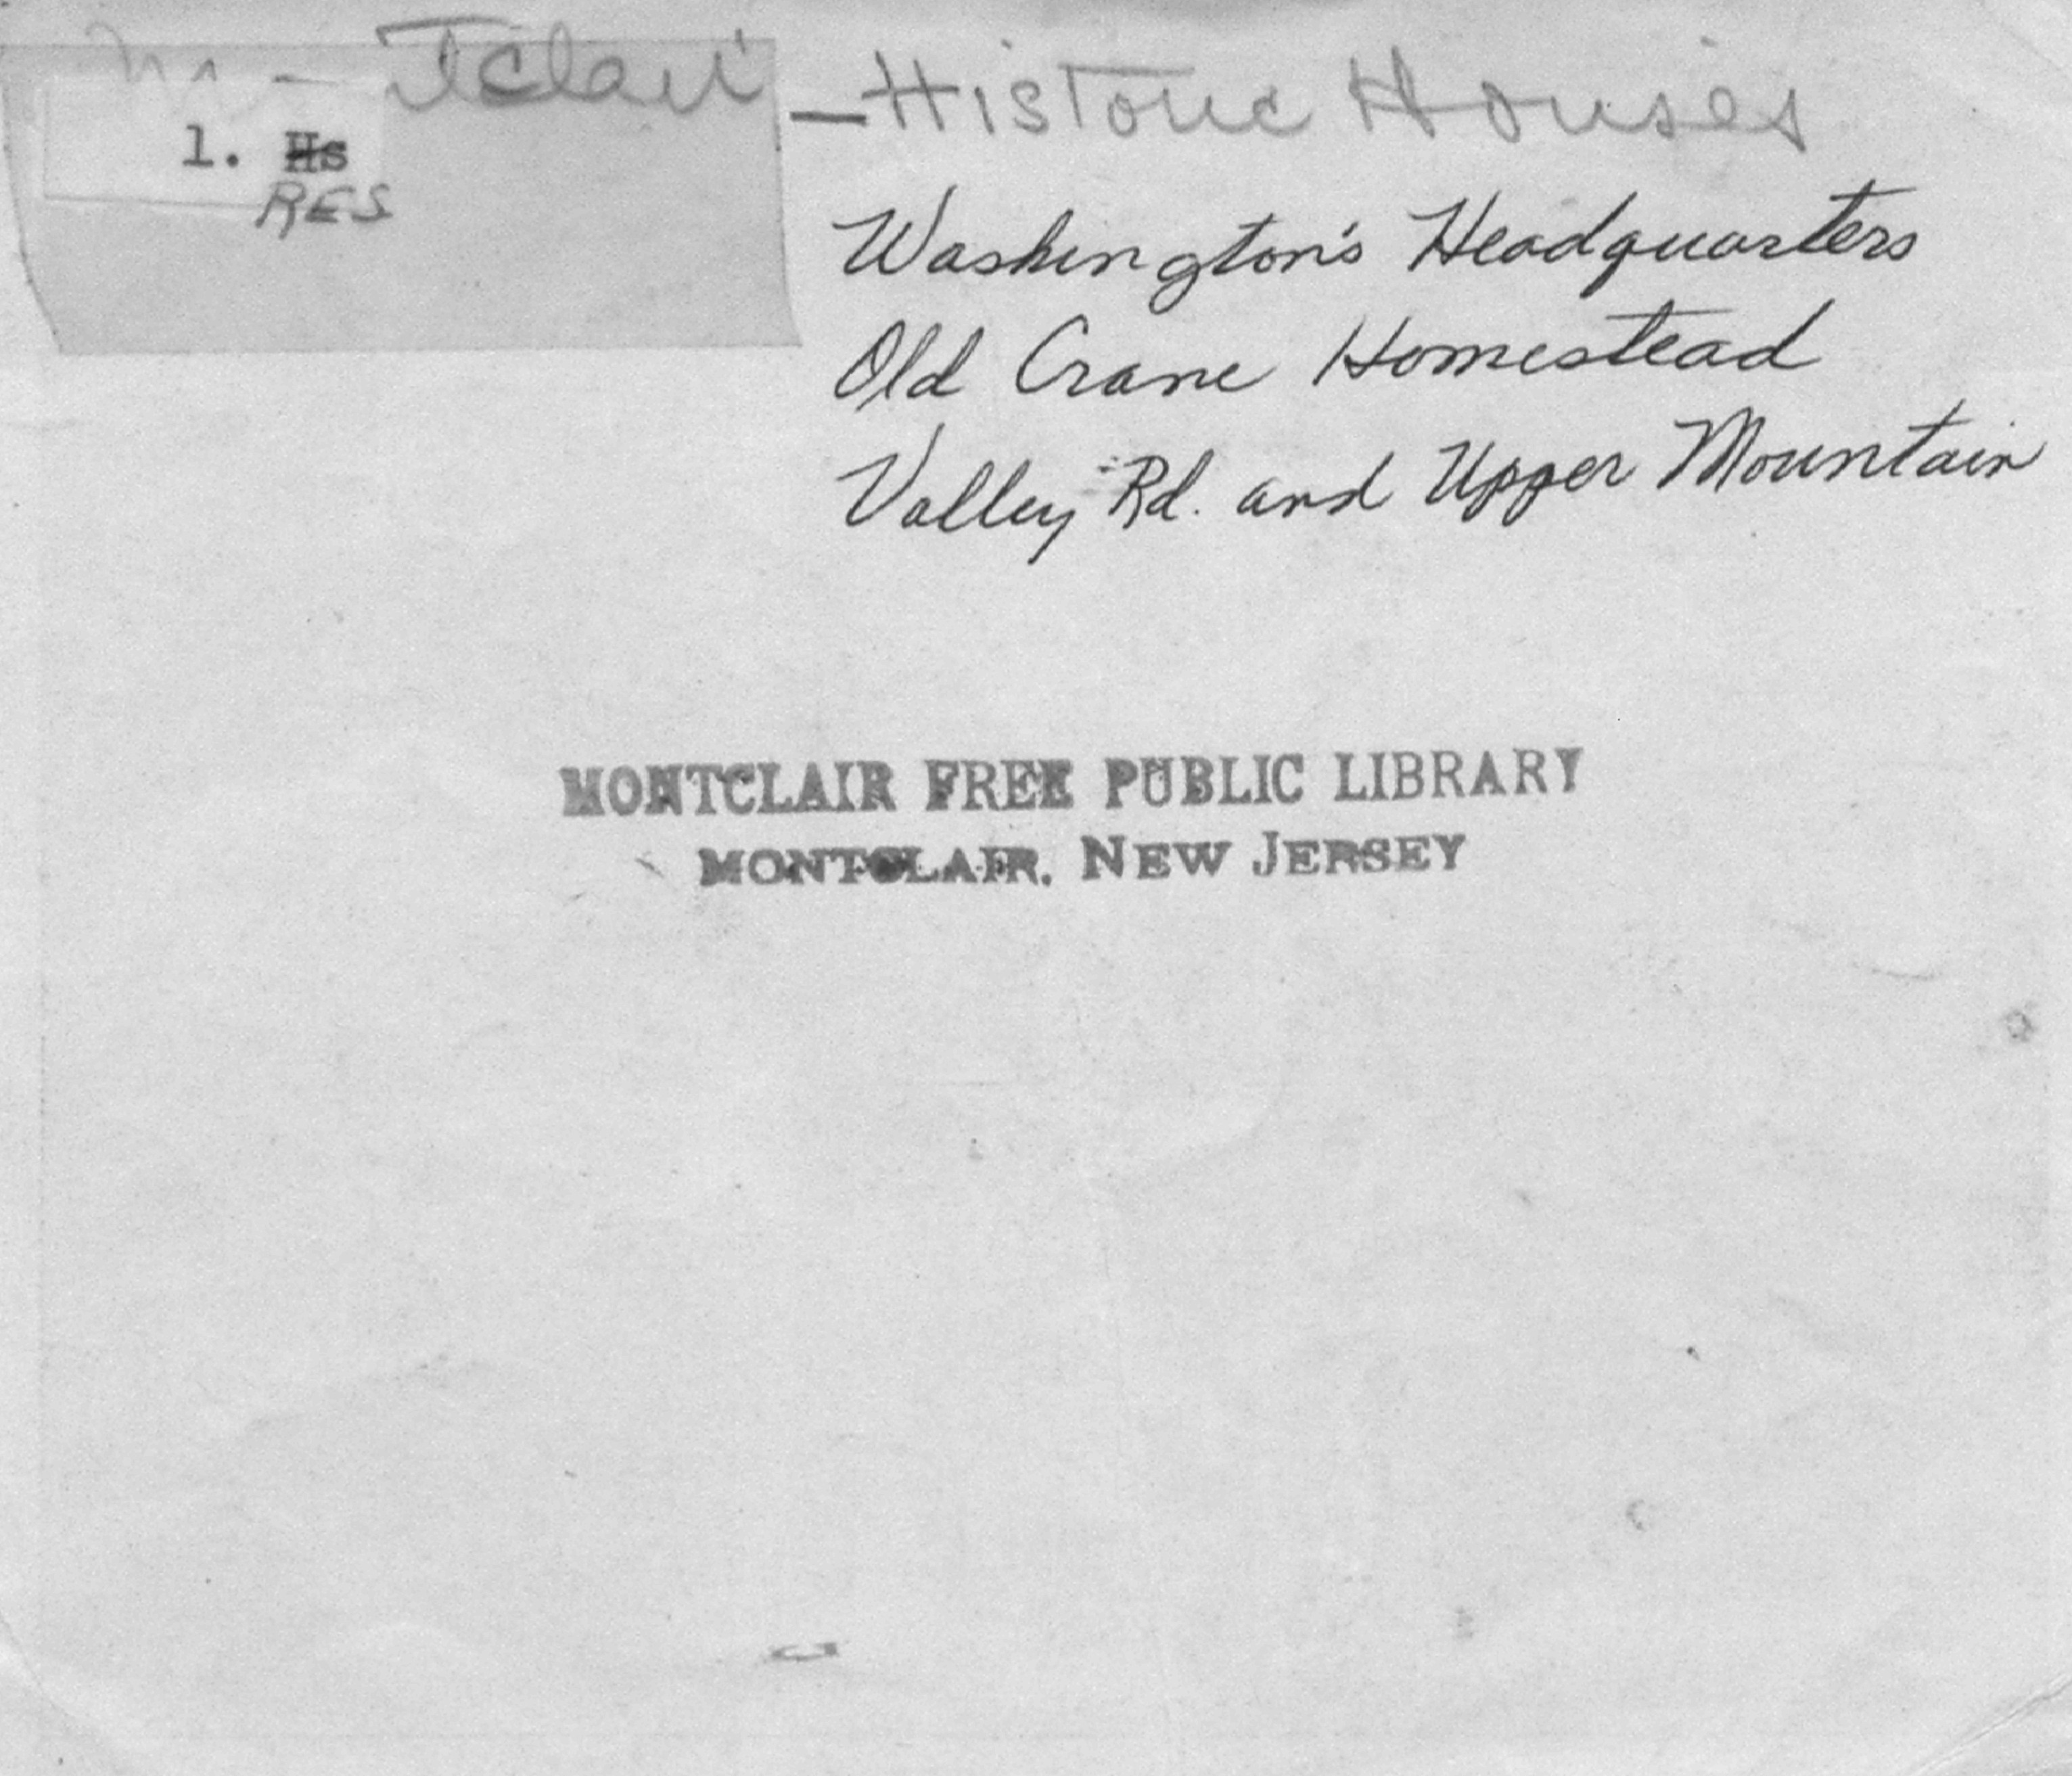 Montclair - Historic Houses
1. Hs
RES
Washington's Headquarters
Old Crane Homestead
Valley Rd. and Upper Mountain
MONTCLAIR FREE PUBLIC LIBRARY
MONTCLAIR, NEW JERSEY